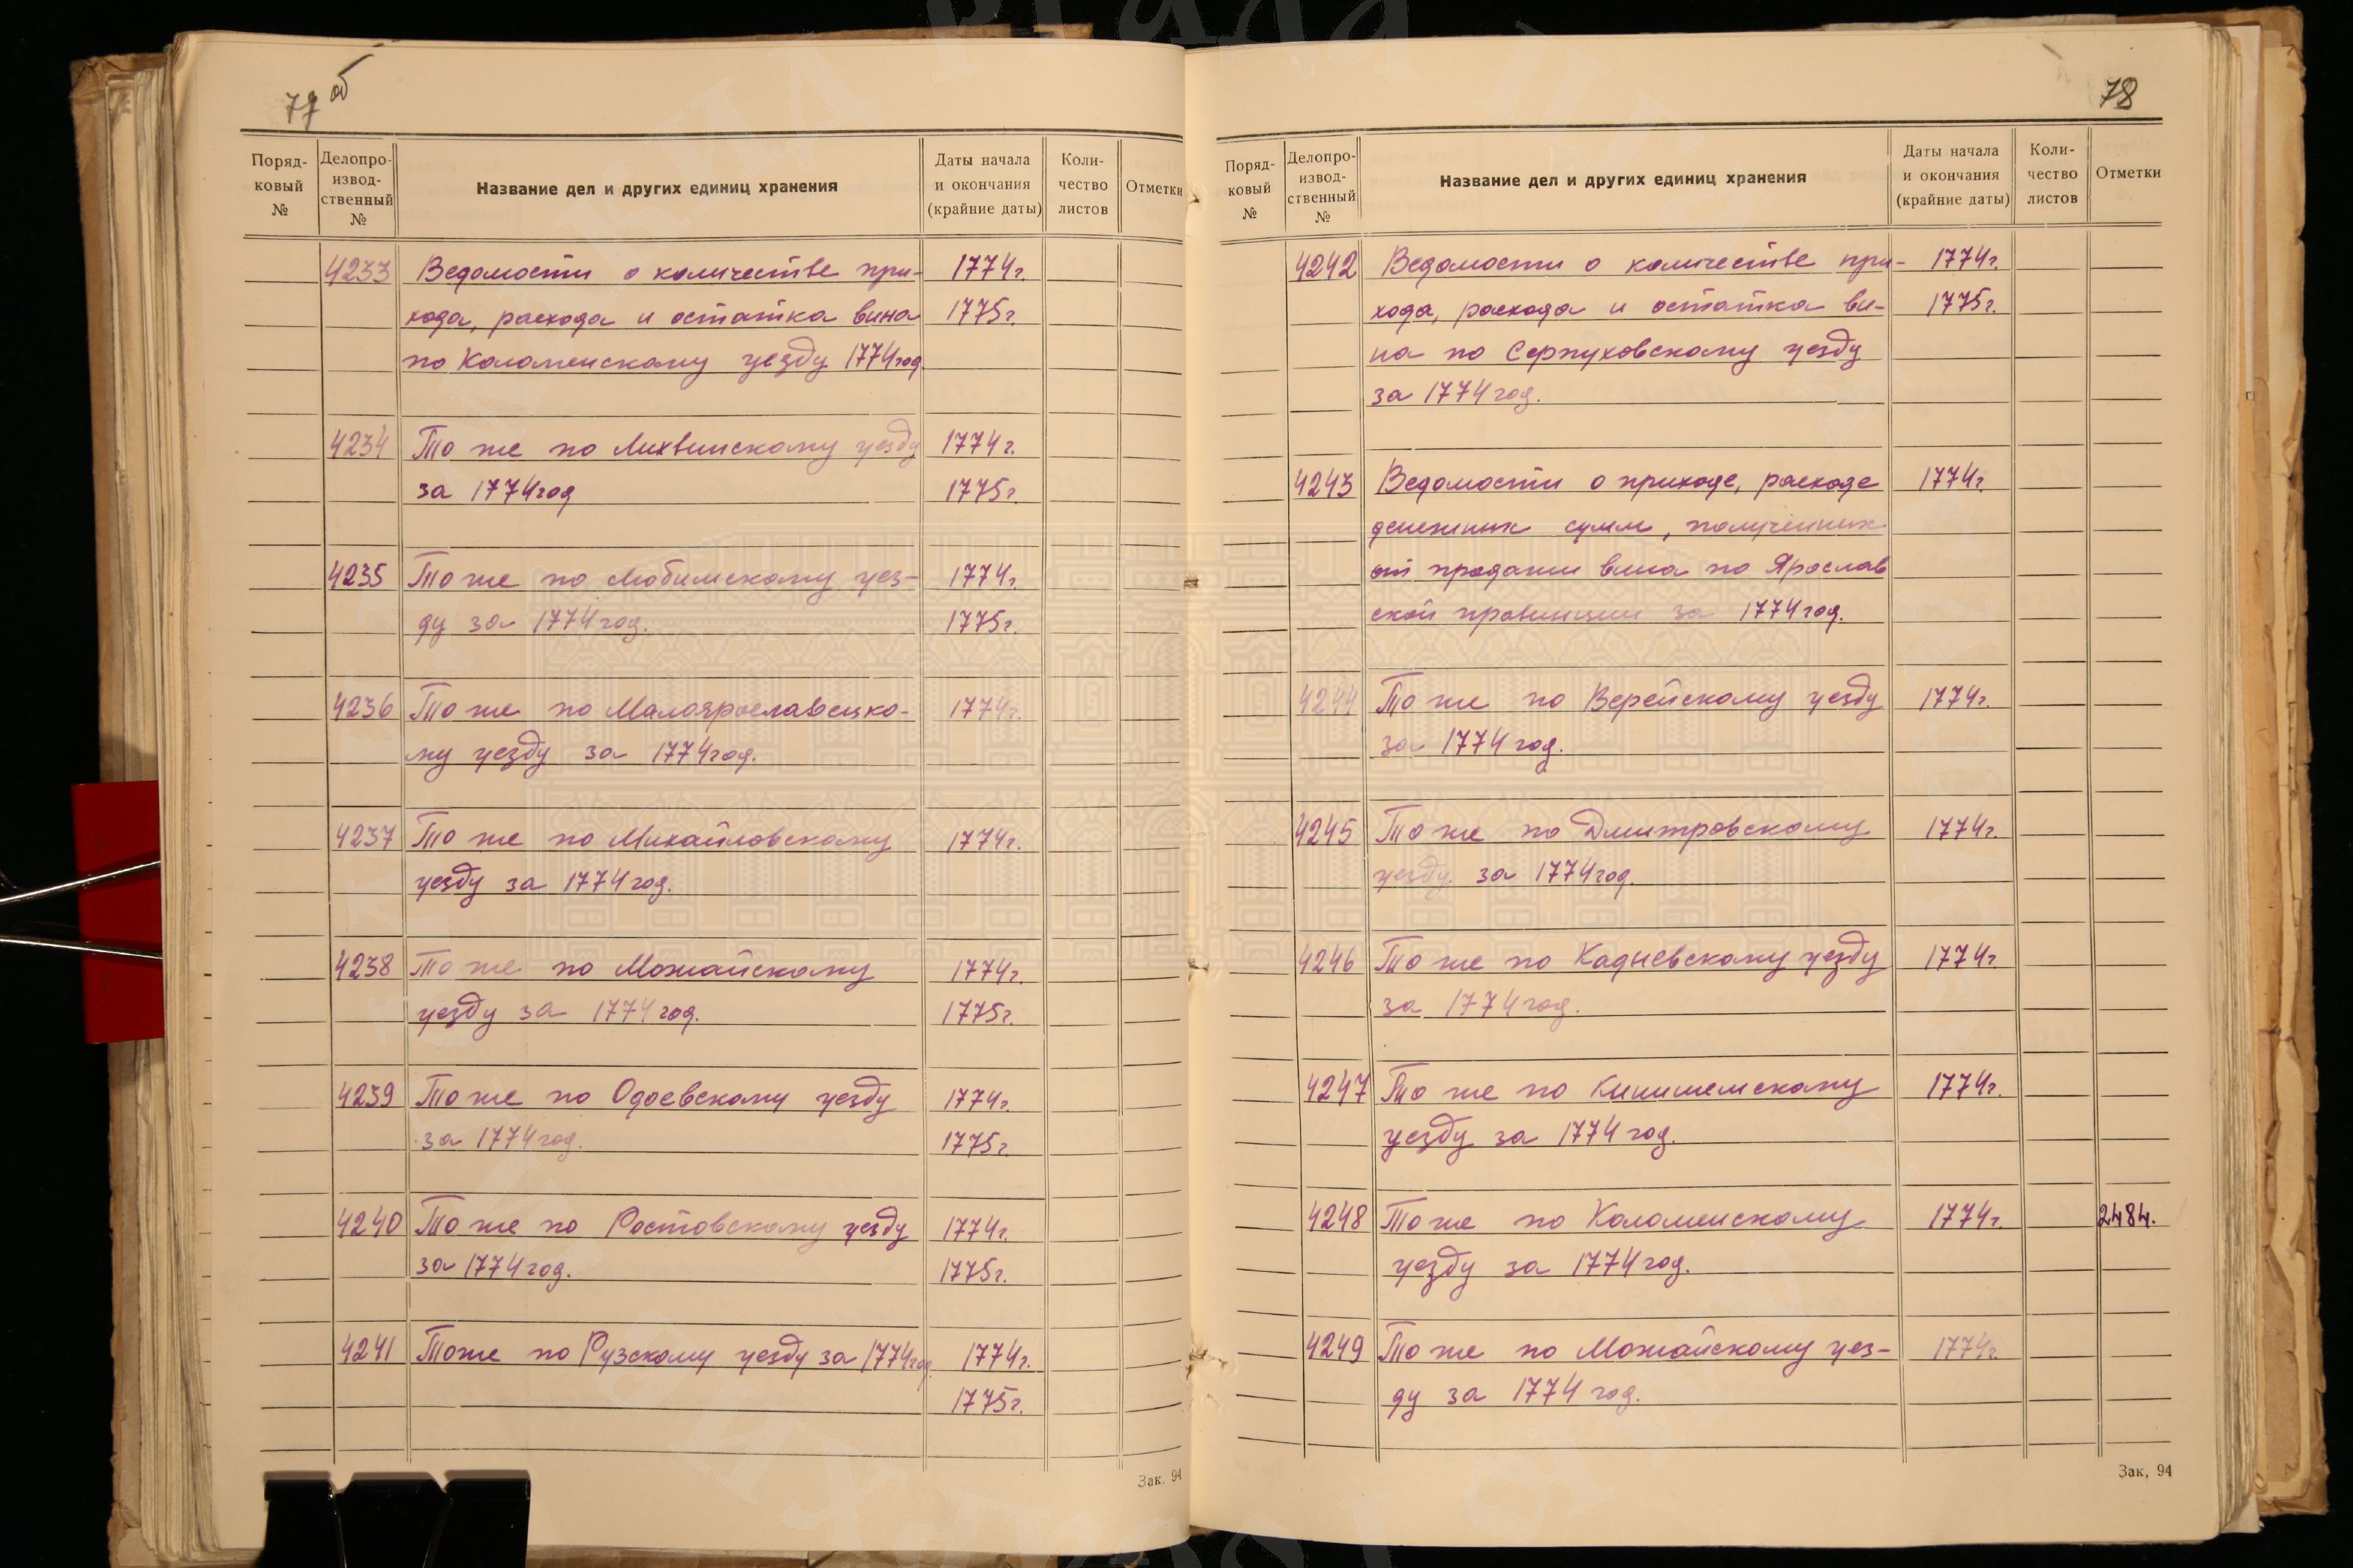 77 об
Поряд-
ковый
№
Делопро-
извод-
ственный
№
Название дел и других единиц хранения
Даты начала
и окончания
(крайние даты)
Коли-
чество
листов
Отметки
4233 Ведомости о количестве при- 1774г.
хода, расхода и остатка вина 1775г.
по Коломенскому уезду 1774год.
4234 То же по Лихвинскому уезду 1774г.
за 1774год 1775г.
4235 То же по Любимскому уез- 1774г.
ду за 1774год. 1775г.
4236 То же по Малоярославецко- 1774г.
му уезду за 1774год.
4237 То же по Михайловскому 1774г.
уезду за 1774год.
4238 То же по Можайскому 1774г.
уезду за 1774год. 1775г.
4239 То же по Одоевскому уезду 1774г.
за 1774год. 1775г.
4240 То же по Ростовскому уезду 1774г.
за 1774год. 1775г.
4241 То же по Рузскому уезду за 1774год. 1774г.
1775г.
Зак. 94
78
Поряд-
ковый
№
Делопро-
извод-
ственный
№
Название дел и других единиц хранения
Даты начала
и окончания
(крайние даты)
Коли-
чество
листов
Отметки
4242 Ведомости о количестве при- 1774г.
хода, расхода и остатка ви- 1775г.
на по Серпуховскому уезду
за 1774год.
4243 Ведомости о приходе, расходе 1774г.
денежных сумм, полученных
от продажи вина по Ярослав
ской провинции за 1774год.
4244 То же по Верейскому уезду 1774г.
за 1774год.
4245 То же по Дмитровскому 1774г.
уезду за 1774год.
4246 То же по Кадыевскому уезду 1774г.
за 1774год.
4247 То же по Кинишемскому 1774г.
уезду за 1774год.
4248 То же по Коломенскому 1774г. 2484.
уезду за 1774год.
4249 То же по Можайскому уез- 1774г.
ду за 1774 год.
Зак, 94